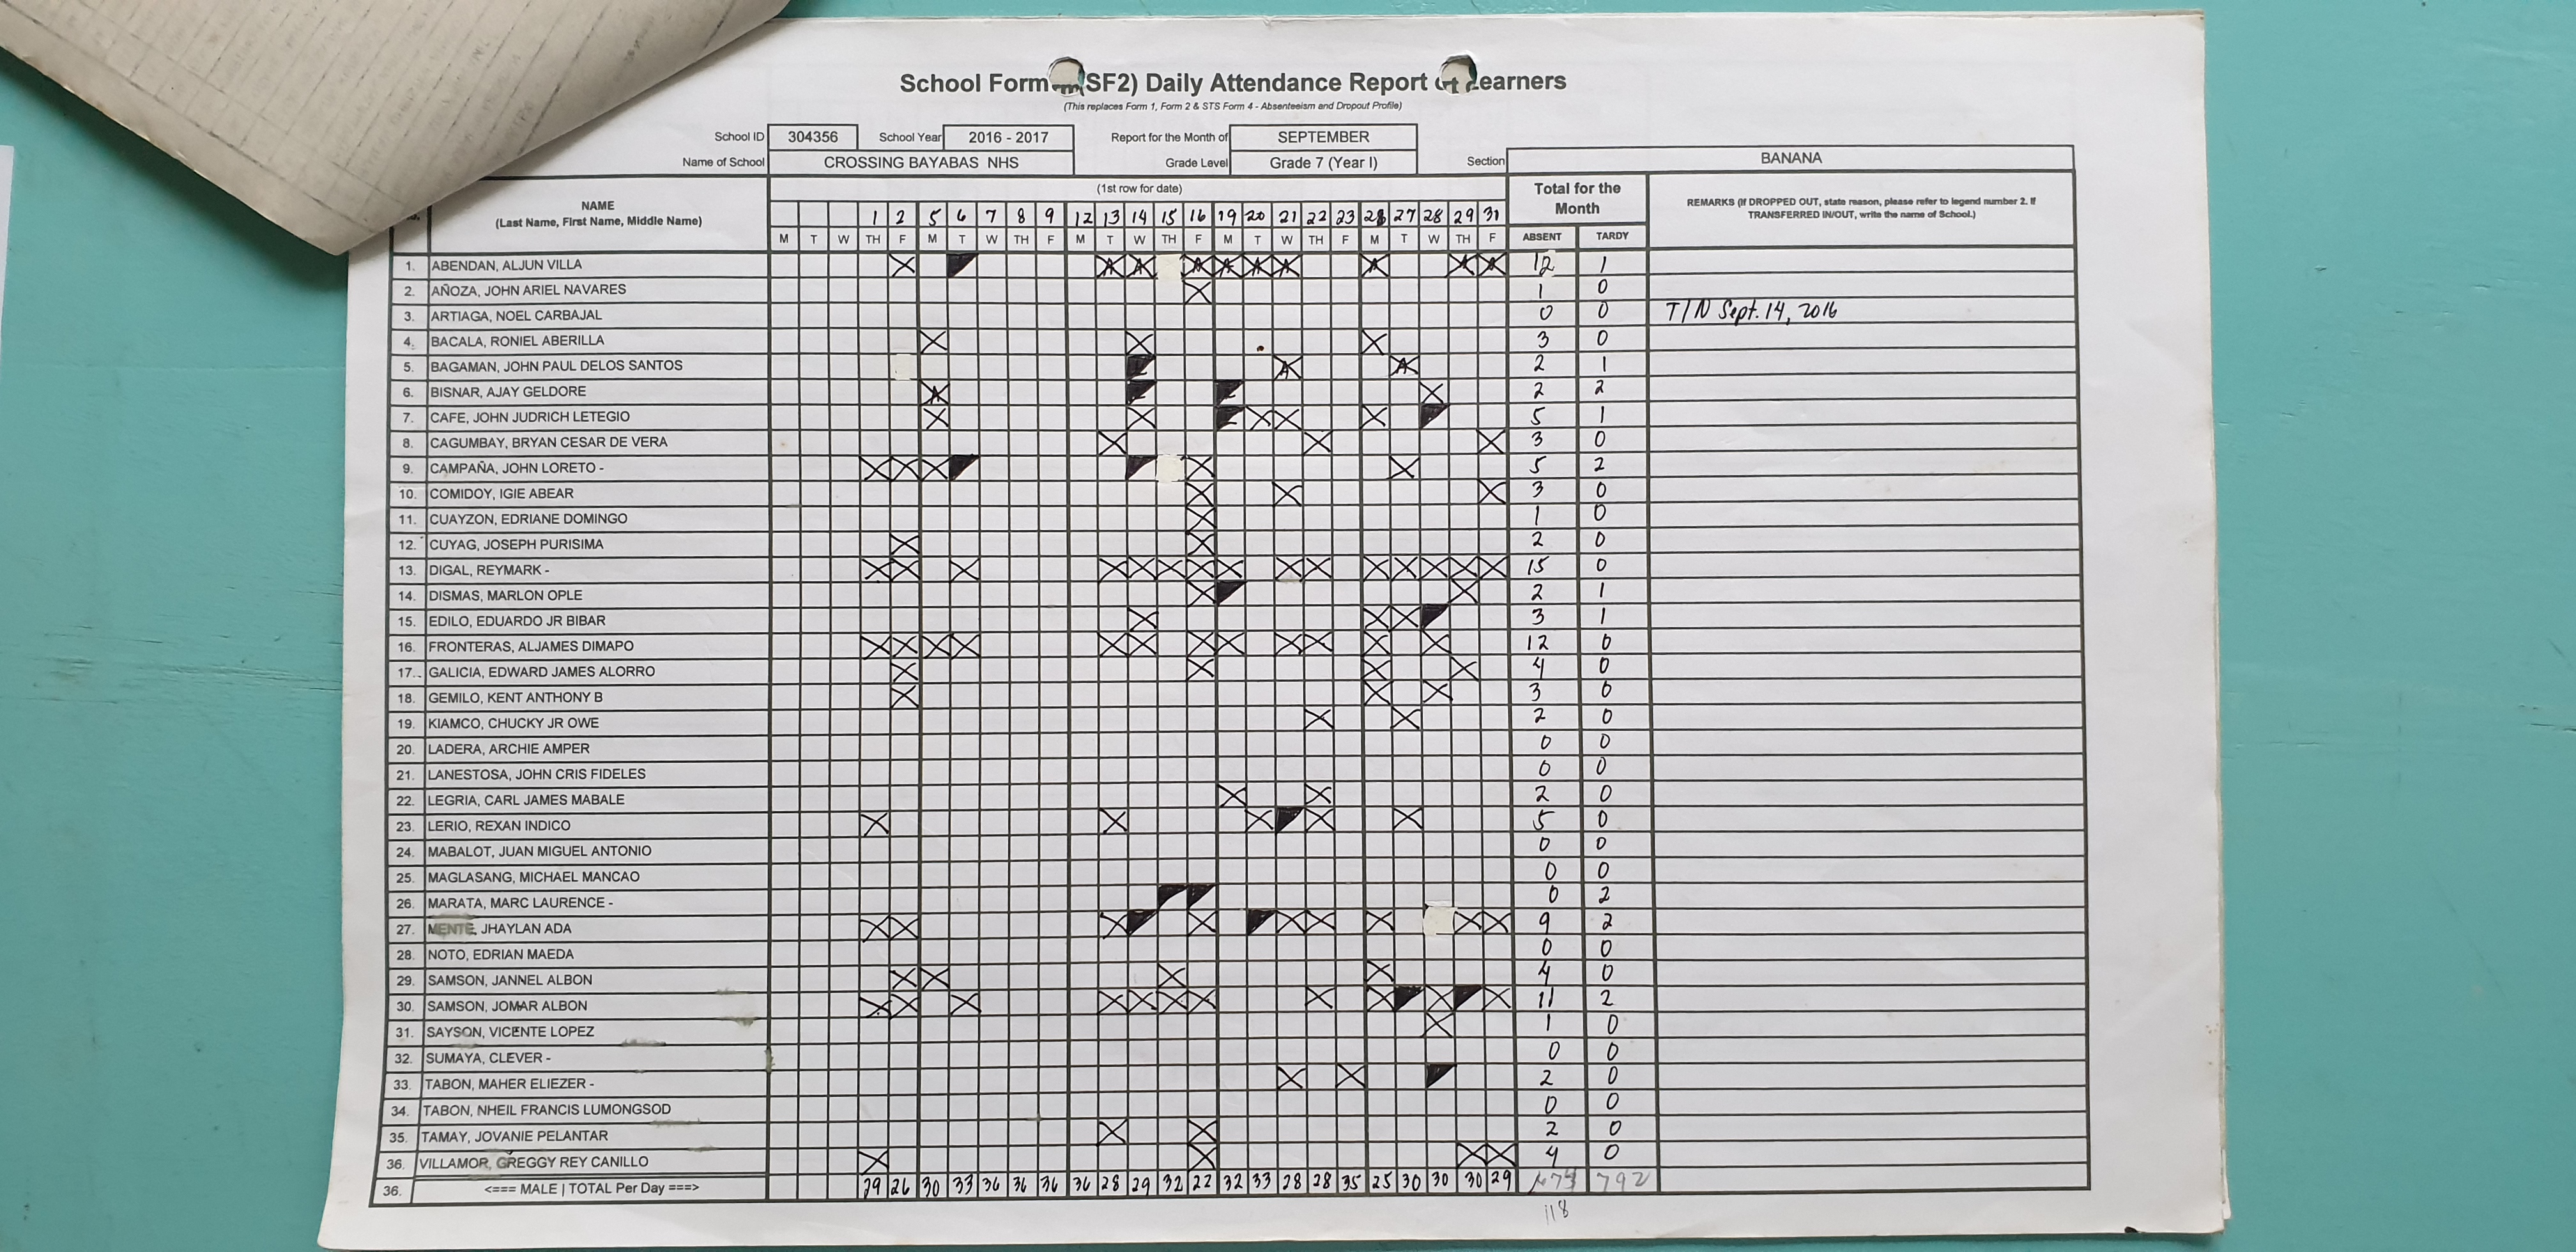 School Form (SF2) Daily Attendance Report of Learners
(This replaces Form 1, Form 2 & STS Form 4 - Absenteeism and Dropout Profile)
School ID 304356 School Year 2016 - 2017 Report for the Month of SEPTEMBER
Name of School CROSSING BAYABAS NHS Grade Level Grade 7 (Year I) Section BANANA
NAME
(Last Name, First Name, Middle Name)
(1st row for date)
Total for the Month
REMARKS (If DROPPED OUT, state reason, please refer to legend number 2. If TRANSFERRED IN/OUT, write the name of School.)
1 2 5 6 7 8 9 12 13 14 15 16 19 20 21 22 23 26 27 28 29 31
M T W TH F M T W TH F M T W TH F M T W TH F M T W TH F ABSENT TARDY
1. ABENDAN, ALJUN VILLA 12 1
2. AÑOZA, JOHN ARIEL NAVARES 1 0
3. ARTIAGA, NOEL CARBAJAL 0 0 T/N Sept. 14, 2016
4. BACALA, RONIEL ABERILLA 3 0
5. BAGAMAN, JOHN PAUL DELOS SANTOS 2 1
6. BISNAR, AJAY GELDORE 2 2
7. CAFE, JOHN JUDRICH LETEGIO 5 1
8. CAGUMBAY, BRYAN CESAR DE VERA 3 0
9. CAMPAÑA, JOHN LORETO - 5 2
10. COMIDOY, IGIE ABEAR 3 0
11. CUAYZON, EDRIANE DOMINGO 1 0
12. CUYAG, JOSEPH PURISIMA 2 0
13. DIGAL, REYMARK - 15 0
14. DISMAS, MARLON OPLE 2 1
15. EDILO, EDUARDO JR BIBAR 3 1
16. FRONTERAS, ALJAMES DIMAPO 12 0
17. GALICIA, EDWARD JAMES ALORRO 4 0
18. GEMILO, KENT ANTHONY B 3 0
19. KIAMCO, CHUCKY JR OWE 2 0
20. LADERA, ARCHIE AMPER 0 0
21. LANESTOSA, JOHN CRIS FIDELES 0 0
22. LEGRIA, CARL JAMES MABALE 2 0
23. LERIO, REXAN INDICO 5 0
24. MABALOT, JUAN MIGUEL ANTONIO 0 0
25. MAGLASANG, MICHAEL MANCAO 0 0
26. MARATA, MARC LAURENCE - 0 2
27. MENTE, JHAYLAN ADA 9 2
28. NOTO, EDRIAN MAEDA 0 0
29. SAMSON, JANNEL ALBON 4 0
30. SAMSON, JOMAR ALBON 11 2
31. SAYSON, VICENTE LOPEZ 1 0
32. SUMAYA, CLEVER - 0 0
33. TABON, MAHER ELIEZER - 2 0
34. TABON, NHEIL FRANCIS LUMONGSOD 0 0
35. TAMAY, JOVANIE PELANTAR 2 0
36. VILLAMOR, GREGGY REY CANILLO 4 0
36. <=== MALE | TOTAL Per Day ===> 29 26 30 33 36 36 36 36 28 29 32 22 32 33 28 28 35 25 30 30 30 29 792
118